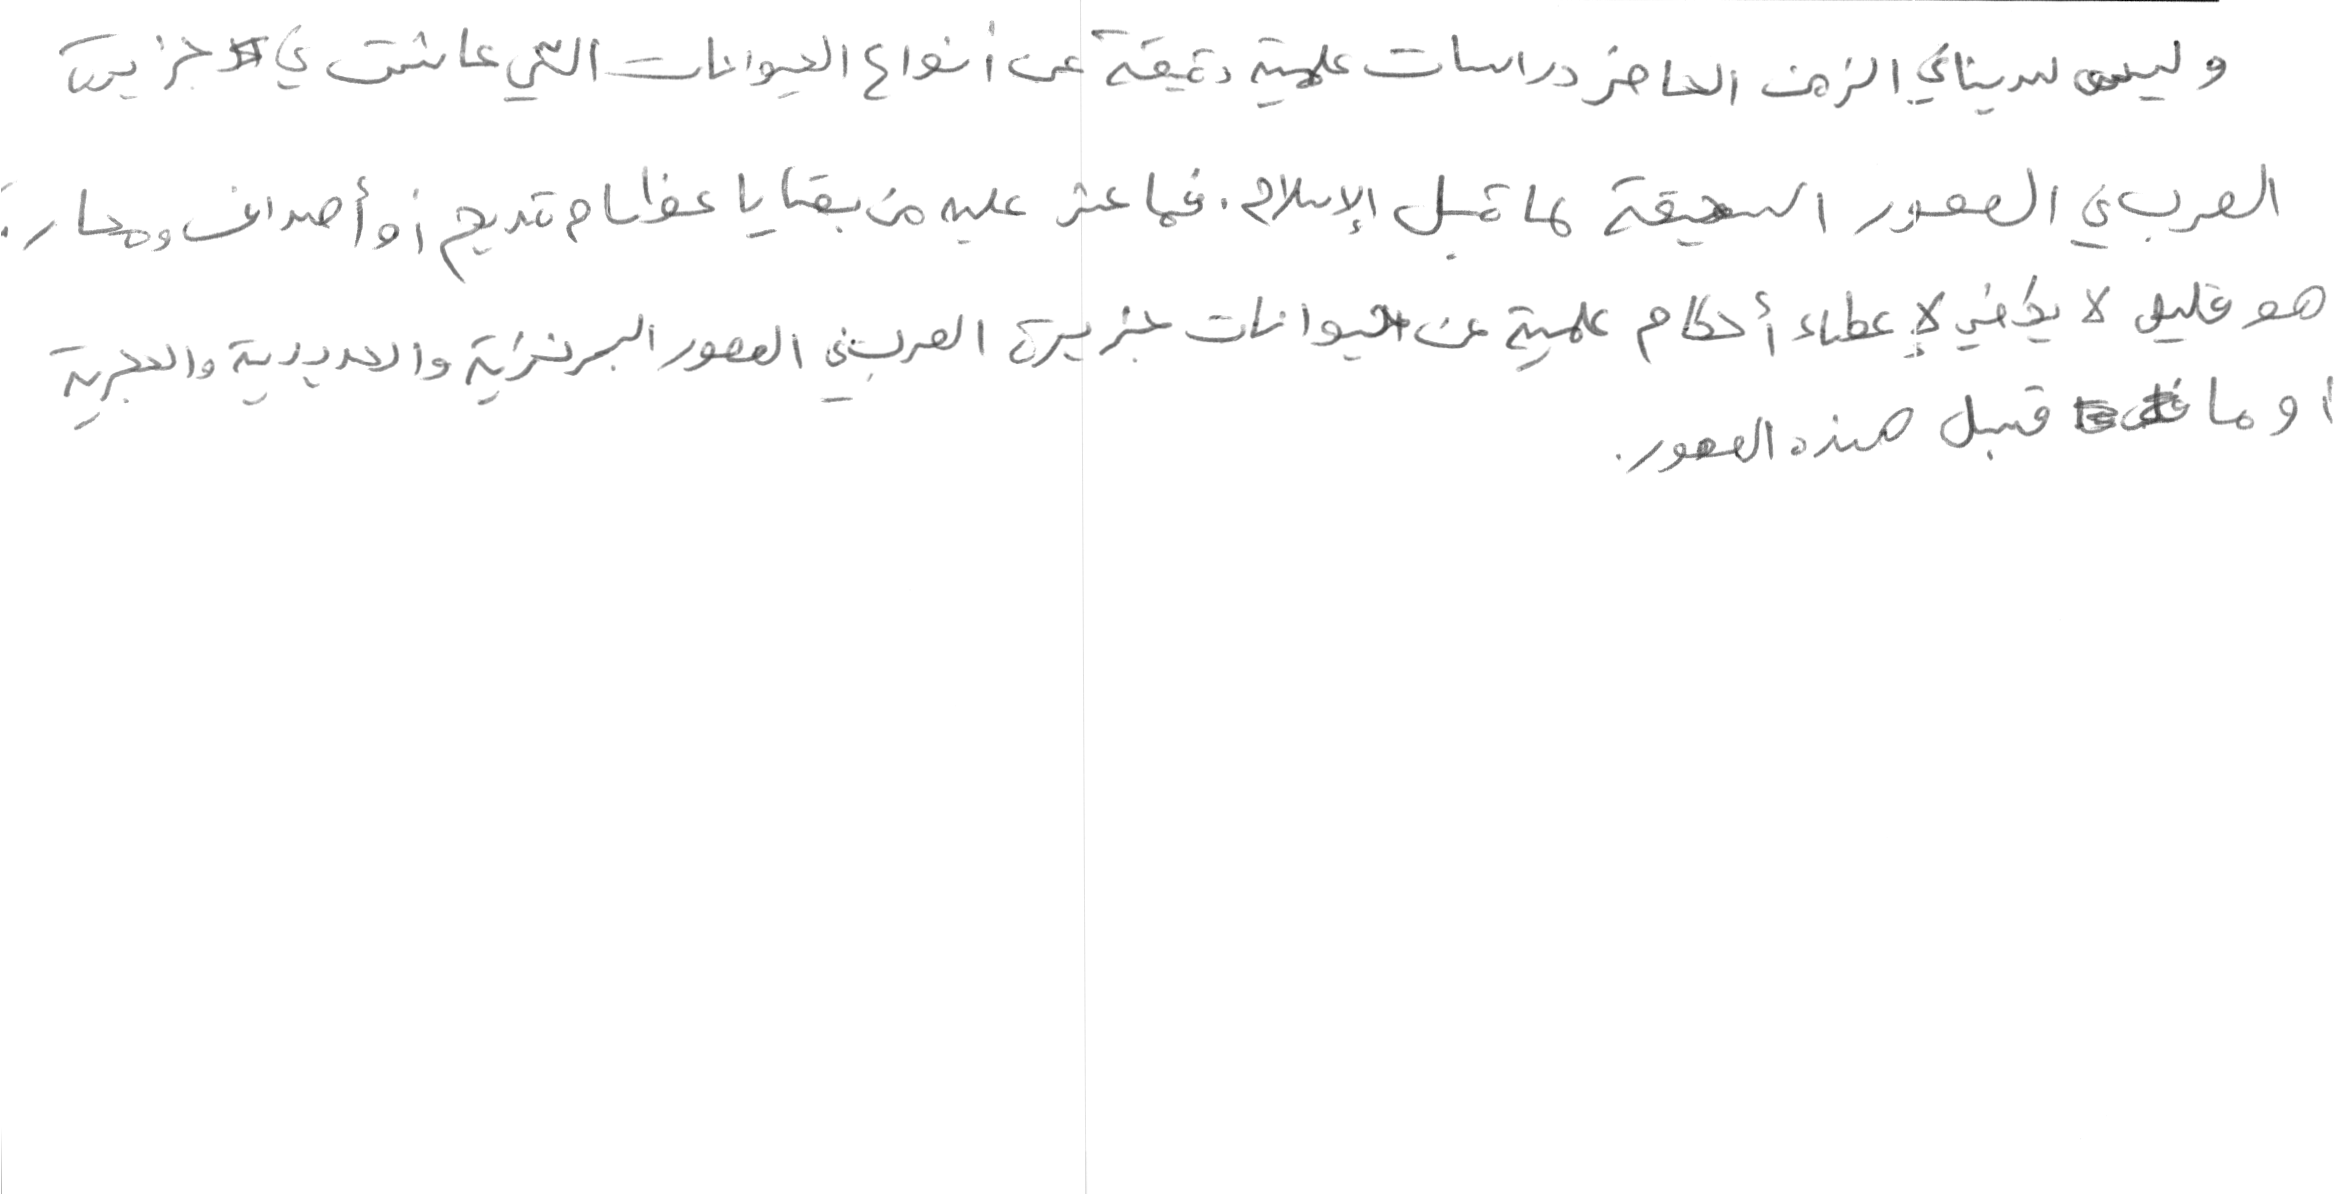 وليس لدينا في الزمن الحاضر دراسات علمية دقيقة عن أنواع الحيوانات التي عاشت في جزيرة
العرب في العصور السحيقة لما قبل الإسلام. فما عثر عليه من بقايا عظام قديم أو أصداف ومحار:
هو قليل لا يكفي لإعطاء أحكام علمية عن حيوانات جزيرة العرب في العصور البرنزية والحديدية والحجرية
او ما قبل هذه العصور.